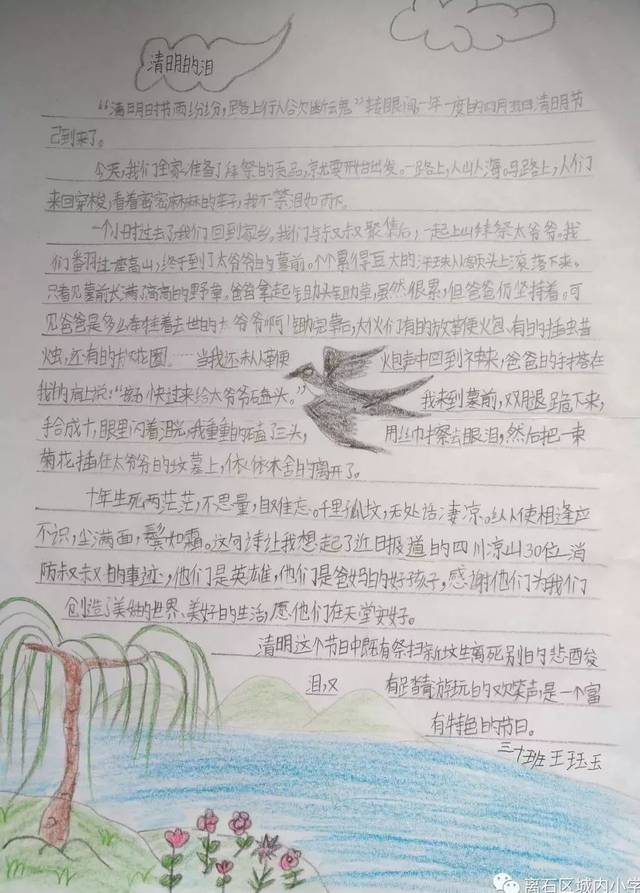 清明的泪
“清明时节雨纷纷,路上行人欲断魂”转眼间,一年一度的四月五日清明节
已到来了。
今天,我们全家准备了拜祭的贡品,就要开始出发。一路上,人山人海。马路上,人们
来回穿梭,看着密密麻麻的车子,我不禁泪如雨下。
一个小时过去了,我们回到家乡。我们与叔叔聚集后,一起上山拜祭太爷爷。我
们翻过一座高山,终于到了太爷爷的墓前。个个累得豆大的汗珠从额头上滚落下来。
只看见墓前长满了高高的野草,爸爸拿起锄头锄草,虽然很累,但爸爸仍坚持着。可
见爸爸是多么牵挂着去世的太爷爷啊!锄完草后,大伙们有的放鞭火炮、有的插蜡
烛,还有的放花圈……当我还未从鞭炮声中回到神来,爸爸的手搭在
我的肩上说:“快过来给太爷爷磕头。”我来到墓前,双腿跪下来,
手合成十,眼里闪着泪光,我重重的磕了三头,用丝巾擦去眼泪,然后把一束
菊花插在太爷爷的坟墓上,依依不舍的离开了。
十年生死两茫茫,不思量,自难忘。千里孤坟,无处话凄凉。纵使相逢应
不识,尘满面,鬓如霜。这句诗让我想起了近日报道的四川凉山30位消
防叔叔的事迹,他们是英雄,他们是爸妈的好孩子,感谢他们为我们
创造了美好的世界、美好的生活,愿他们在天堂安好。
清明这个节日中既有祭扫新坟生离死别的悲酸
泪,又有踏青游玩的欢笑声,是一个富
有特色的节日。
三十班 王珏玉
离石区城内小学